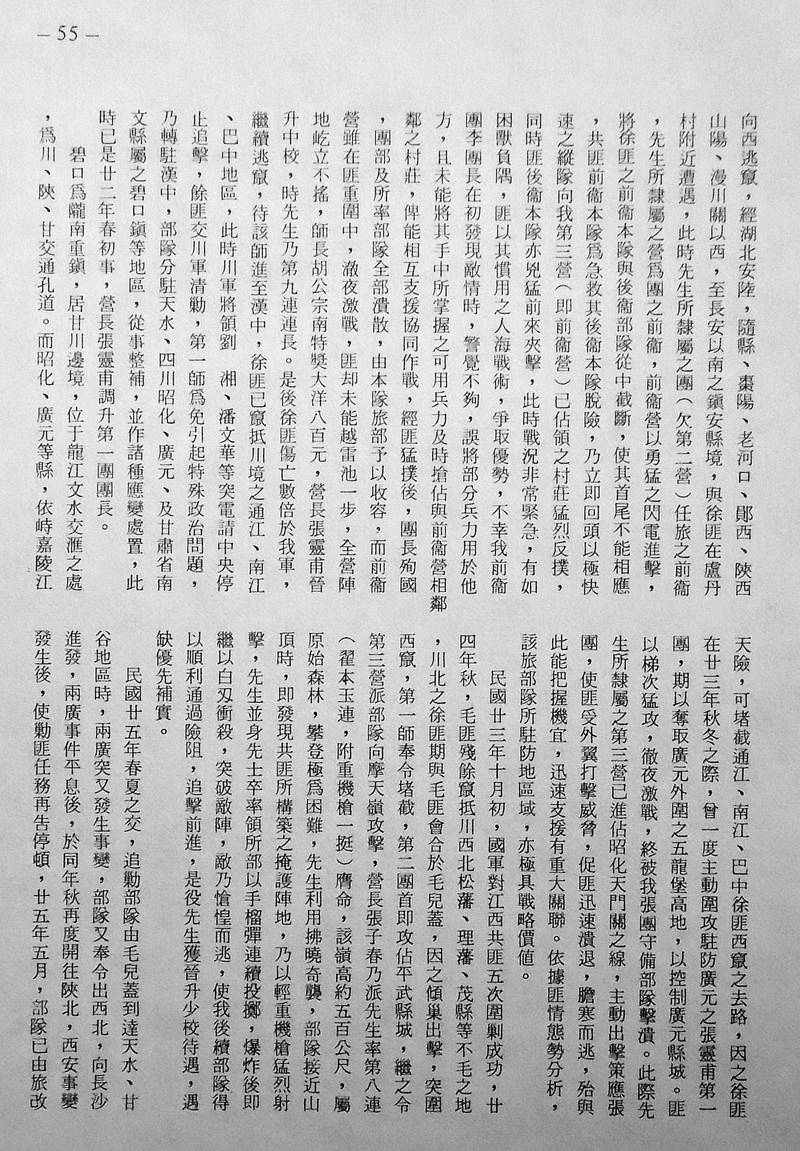 — 55 —
向西逃竄，經湖北安陸，隨縣、棗陽、老河口、鄖西、陝西
山陽、漫川關以西，至長安以南之鎮安縣境，與徐匪在盧丹
村附近遭遇，此時先生所隸屬之團（欠第二營）任旅之前衞
，先生所隸屬之營爲團之前衞，前衞營以勇猛之閃電進擊，
將徐匪之前衞本隊與後衞部隊從中截斷，使其首尾不能相應
，共匪前衞本隊爲急救其後衞本隊脫險，乃立即回頭以極快
速之縱隊向我第三營（即前衞營）已佔領之村莊猛烈反撲，
同時匪後衞本隊亦兇猛前來夾擊，此時戰況非常緊急，有如
困獸負隅，匪以其慣用之人海戰術，爭取優勢，不幸我前衞
團李團長在初發現敵情時，警覺不夠，誤將部分兵力用於他
方，且未能將其手中所掌握之可用兵力及時搶佔與前衞營相鄰
鄰之村莊，俾能相互支援協同作戰，經匪猛撲後，團長殉國
，團部及所率部隊全部潰散，由本隊旅部予以收容，而前衞
營雖在匪重圍中，澈夜激戰，匪却未能越雷池一步，全營陣
地屹立不搖，師長胡公宗南特獎大洋八百元，營長張靈甫晉
升中校，時先生乃第九連連長。是後徐匪傷亡數倍於我軍，
繼續逃竄，待該師進至漢中，徐匪已竄抵川境之通江、南江
、巴中地區，此時川軍將領劉　湘、潘文華等突電請中央停
止追擊，餘匪交川軍清勦，第一師爲免引起特殊政治問題，
乃轉駐漢中，部隊分駐天水、四川昭化、廣元、及甘肅省南
文縣屬之碧口鎮等地區，從事整補，並作諸種應變處置，此
時已是廿二年春初事，營長張靈甫調升第一團團長。
碧口爲隴南重鎮，居甘川邊境，位于龍江文水交滙之處
，爲川、陝、甘交通孔道。而昭化、廣元等縣，依峙嘉陵江
天險，可堵截通江、南江、巴中徐匪西竄之去路，因之徐匪
在廿三年秋冬之際，曾一度主動圍攻駐防廣元之張靈甫第一
團，期以奪取廣元外圍之五龍堡高地，以控制廣元縣城。匪
以梯次猛攻，徹夜激戰，終被我張團守備部隊擊潰。此際先
生所隸屬之第三營已進佔昭化天門關之線，主動出擊策應張
團，使匪受外翼打擊威脅，促匪迅速潰退，膽寒而逃，殆與
此能把握機宜，迅速支援有重大關聯。依據匪情態勢分析，
該旅部隊所駐防地區域，亦極具戰略價値。
民國廿三年十月初，國軍對江西共匪五次圍剿成功，廿
四年秋，毛匪殘餘竄抵川西北松藩、理藩、茂縣等不毛之地
，川北之徐匪期與毛匪會合於毛兒蓋，因之傾巢出擊，突圍
西竄，第一師奉令堵截，第二團首即攻佔平武縣城，繼之令
第三營派部隊向摩天嶺攻擊，營長張子春乃派先生率第八連
（翟本玉連，附重機槍一挺）膺命，該嶺高約五百公尺，屬
原始森林，攀登極爲困難，先生利用拂曉奇襲，部隊接近山
頂時，即發現共匪所構築之掩護陣地，乃以輕重機槍猛烈射
擊，先生並身先士卒率領所部以手榴彈連續投擲，爆炸後即
繼以白刃衝殺，突破敵陣，敵乃愴惶而逃，使我後續部隊得
以順利通過險阻，追擊前進，是役先生獲晉升少校待遇，遇
缺優先補實。
民國廿五年春夏之交，追勦部隊由毛兒蓋到達天水、甘
谷地區時，兩廣突又發生事變，部隊又奉令出西北，向長沙
進發，兩廣事件平息後，於同年秋再度開往陝北，西安事變
發生後，使勦匪任務再吿停頓，廿五年五月，部隊已由旅改